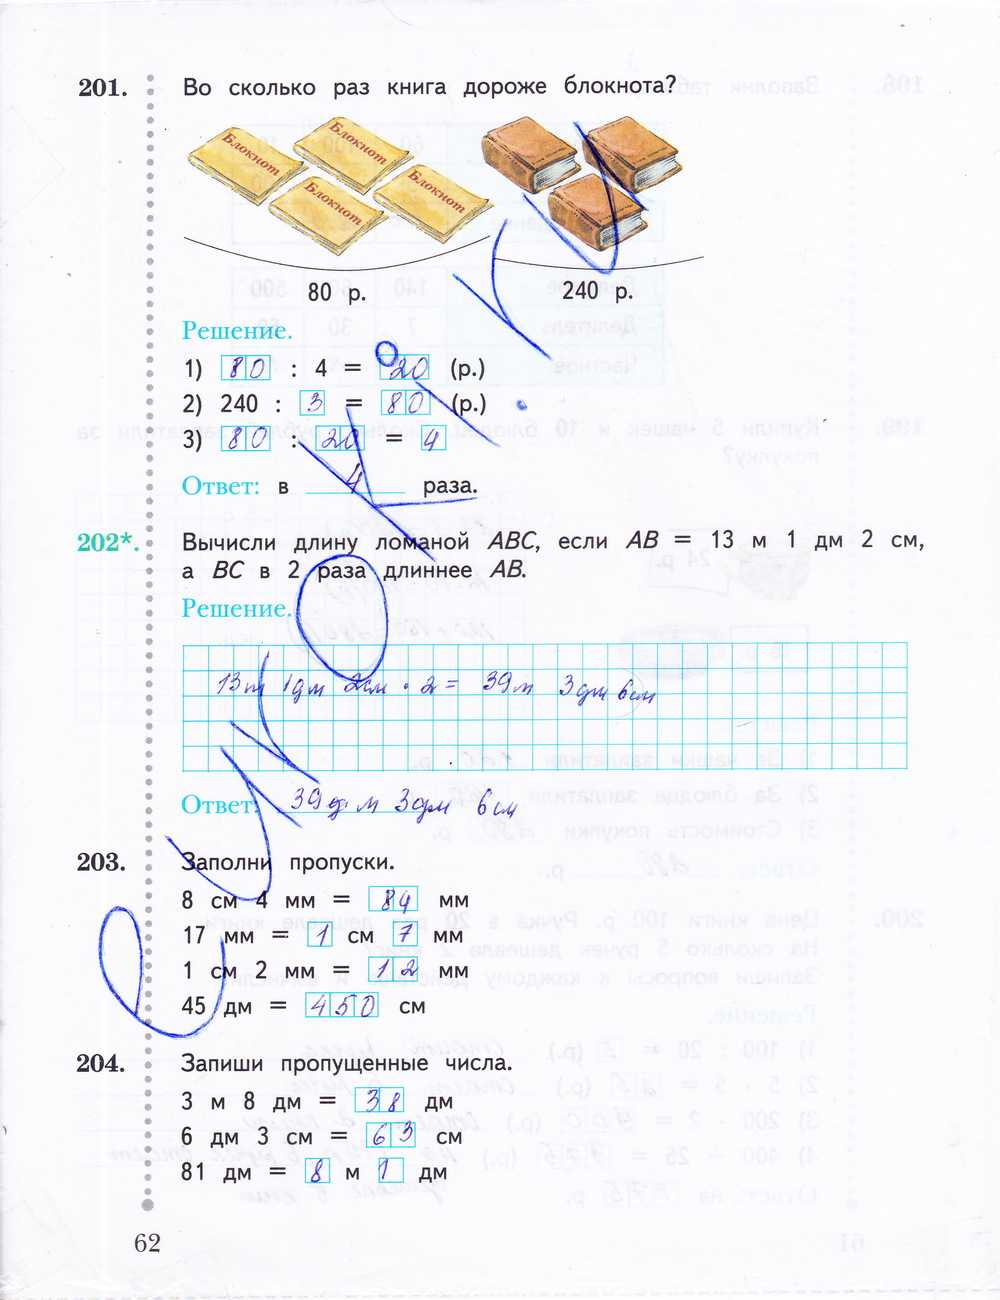 201. Во сколько раз книга дороже блокнота?
Блокнот Блокнот
Блокнот Блокнот
80 р. 240 р.
Решение.
1) 80 : 4 = 20 (р.)
2) 240 : 3 = 80 (р.)
3) 80 : 20 = 4
Ответ: в 4 раза.
202*. Вычисли длину ломаной ABC, если AB = 13 м 1 дм 2 см,
а BC в 2 раза длиннее AB.
Решение.
13м 1дм 2см · 2 = 39м 3дм 6см
Ответ: 39 м 3дм 6см
203. Заполни пропуски.
8 см 4 мм = 84 мм
17 мм = 1 см 7 мм
1 см 2 мм = 12 мм
45 дм = 450 см
204. Запиши пропущенные числа.
3 м 8 дм = 38 дм
6 дм 3 см = 63 см
81 дм = 8 м 1 дм
62